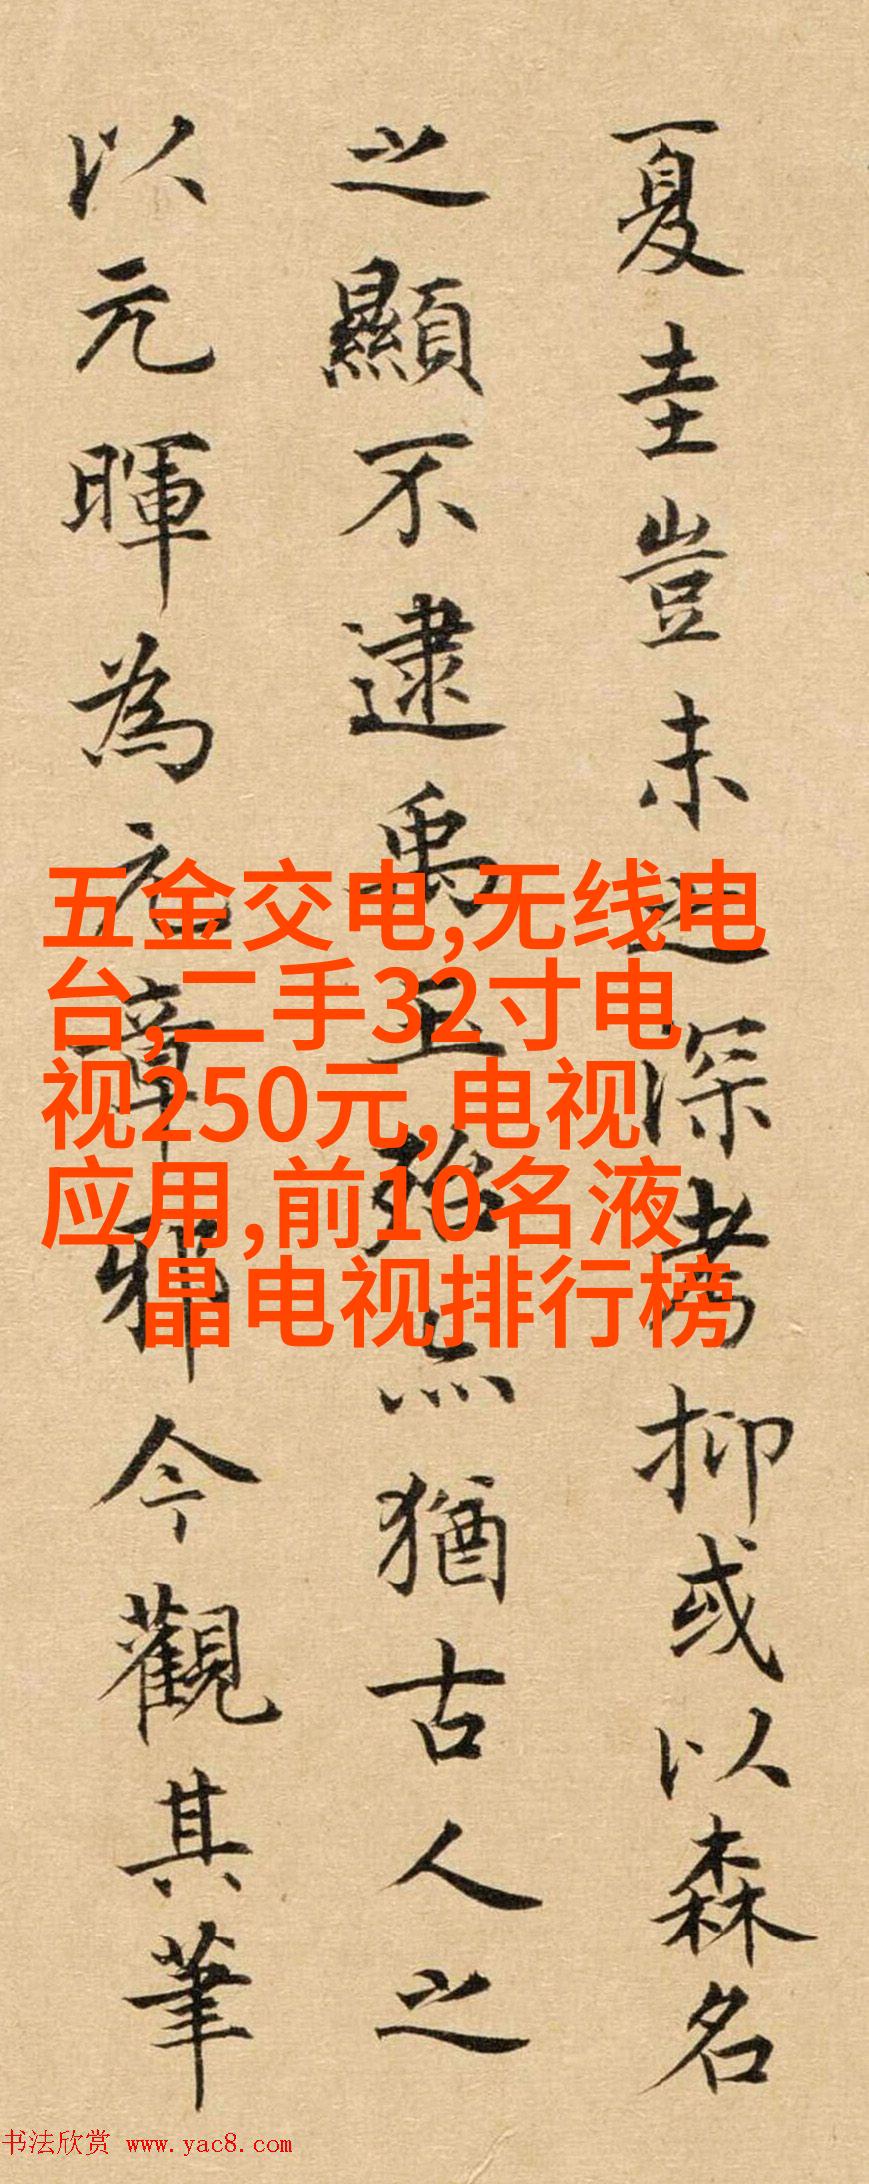 夏圭豈未之深考抑或以森名
之顯不逮禹玉殆亦猶古人之
以元暉為元章邪今觀其筆
五金交电,无线电
台,二手32寸电
视250元,电视
应用,前10名液
晶电视排行榜
书法欣赏 www.yac8.com